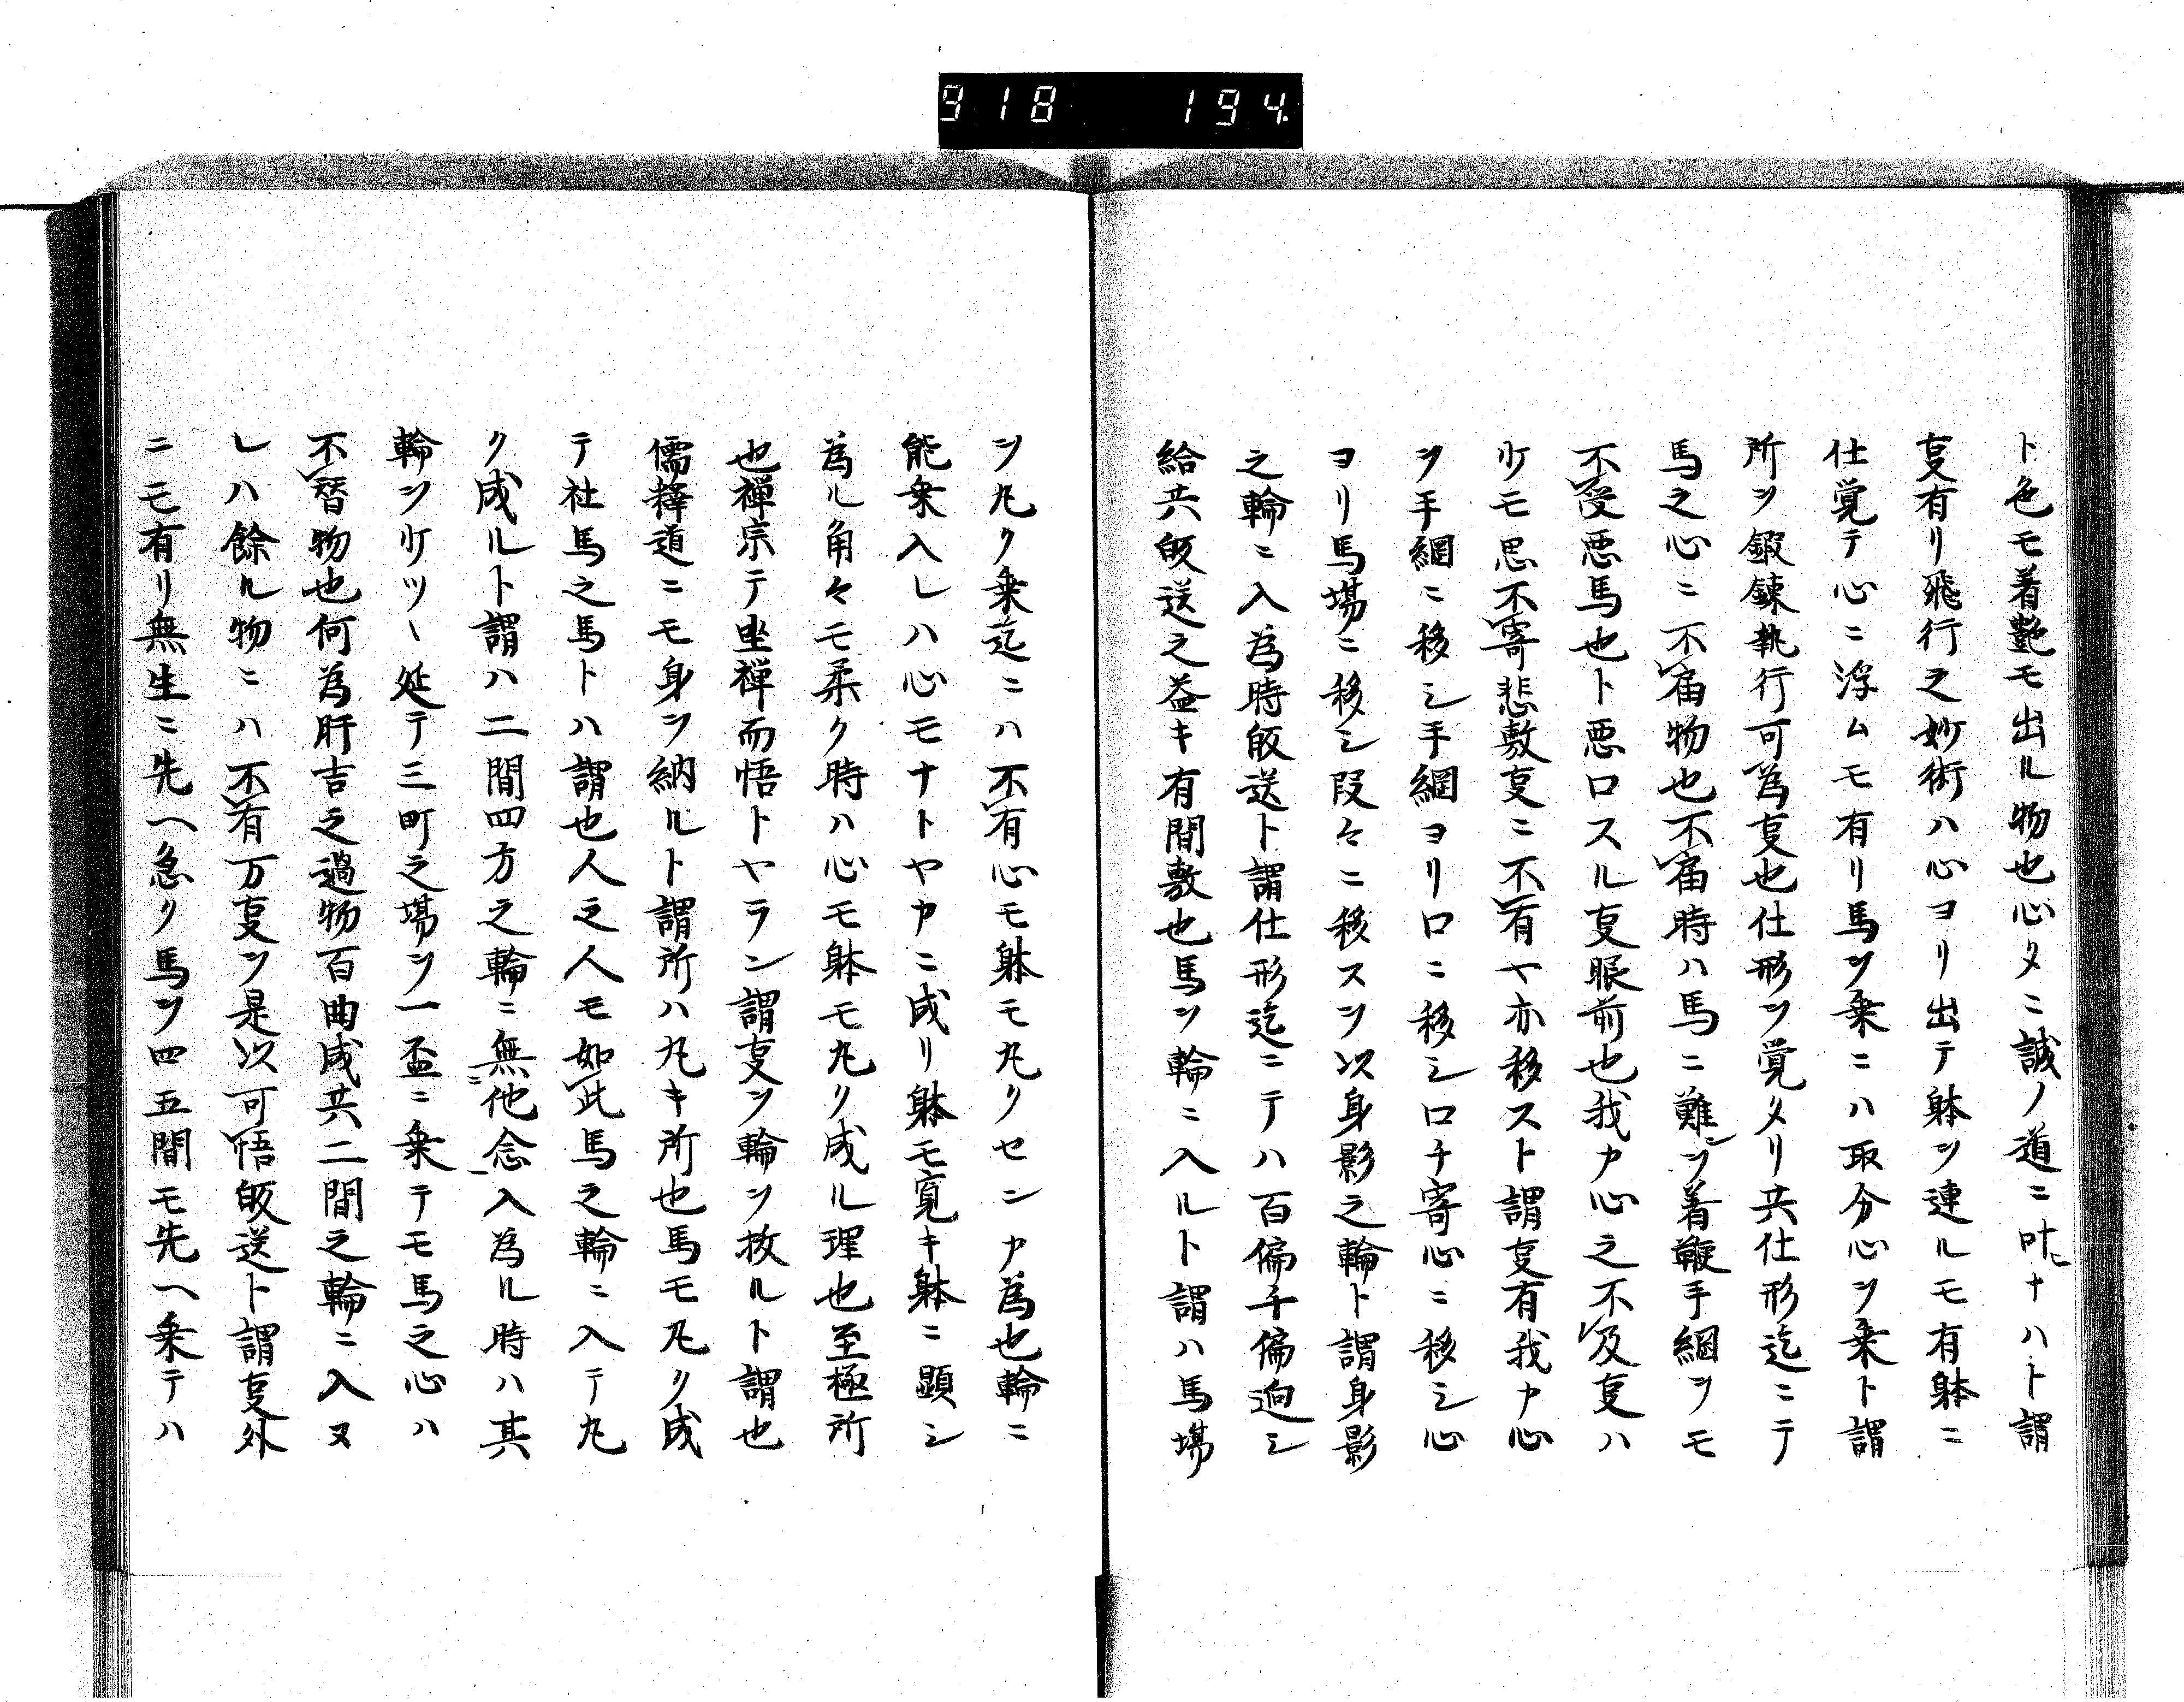 918 194.
ト色モ着艶モ出ル物也心タニ誠ノ道ニ叶ナハト謂
叓有リ飛行之妙術ハ心ヨリ出テ躰ヲ連ルモ有躰ニ
仕覚テ心ニ浮ムモ有リ馬ヲ乗ニハ取分心ヲ乗ト謂
所ヲ鍜錬執行可為叓也仕形ヲ覚タリ共仕形迄ニテ
馬之心ニ不届物也不届時ハ馬ニ難ヲ着鞭手綱ヲモ
不受悪馬也ト悪口スル叓眼前也我カ心之不及叓ハ
少モ思不寄悲敷叓ニ不有ヤ亦移スト謂叓有我カ心
ヲ手綱ニ移シ手綱ヨリ口ニ移シ口チ寄心ニ移シ心
ヨリ馬場ニ移シ段々ニ移スヲ以身影之輪ト謂身影
之輪ニ入為時皈送ト謂仕形迄ニテハ百偏千偏逈シ
給共皈送之益キ有間敷也馬ヲ輪ニ入ルト謂ハ馬場
ヲ丸ク乗迄ニハ不有心モ躰モ丸クセンカ為也輪ニ
能乗入レハ心モナトヤカニ成リ躰モ寛キ躰ニ顕シ
為ル角々モ柔ク時ハ心モ躰モ丸ク成ル理也至極所
也禅宗テ坐禅而悟トヤラン謂叓ヲ輪ヲ放ルト謂也
儒釋道ニモ身ヲ納ルト謂所ハ丸キ所也馬モ丸ク成
テ社馬之馬トハ謂也人之人モ如此馬之輪ニ入テ丸
ク成ルト謂ハ二間四方之輪ニ無他念入為ル時ハ其
輪ヲ少ツヽ延テ三町之場ヲ一盃ニ乗テモ馬之心ハ
不替物也何為肝吉之過物百曲成共二間之輪ニ入ヌ
レハ餘ル物ニハ不有万叓ヲ是以可悟皈送ト謂叓外
ニモ有リ無生ニ先ヘ急ク馬ヲ四五間モ先ヘ乗テハ